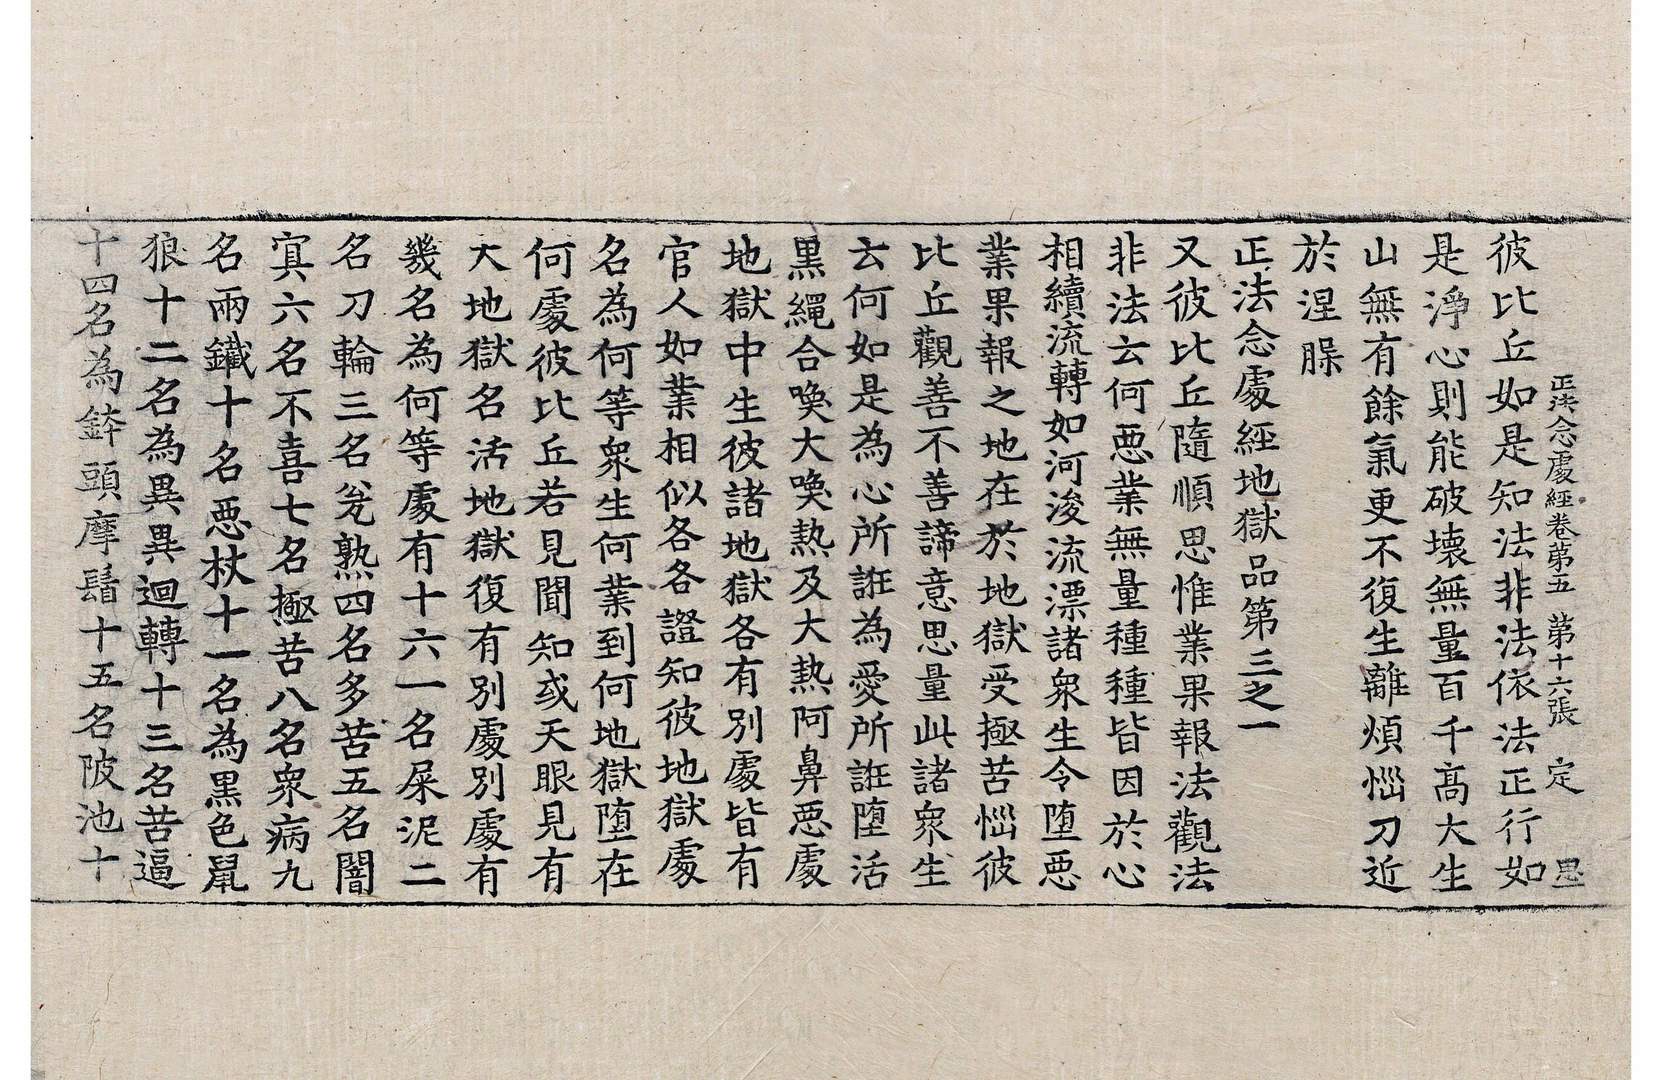 正法念處經卷苐五 苐十六張 定
彼比丘如是知法非法依法正行如
是淨心則能破壞無量百千高大生
山無有餘氣更不復生離煩惱刀近
於涅槃
正法念處經地獄品苐三之一
又彼比丘隨順思惟業果報法觀法
非法云何惡業無量種種皆因於心
相續流轉如河浚流漂諸衆生令墮惡
業果報之地在於地獄受極苦惱彼
比丘觀善不善諦意思量此諸衆生
云何如是為心所誑為愛所誑墮活
黒繩合喚大喚熱及大熱阿鼻惡處
地獄中生彼諸地獄各有別處皆有
官人如業相似各各證知彼地獄處
名為何等衆生何業到何地獄墮在
何處彼比丘若見聞知或天眼見有
大地獄名活地獄復有別處別處有
幾名為何等處有十六一名屎泥二
名刀輪三名瓮熟四名多苦五名闇
冥六名不喜七名極苦八名衆病九
名兩鐵十名惡杖十一名為黒色鼠
狼十二名為異異迴轉十三名苦逼
十四名為鉢頭摩鬚十五名陂池十